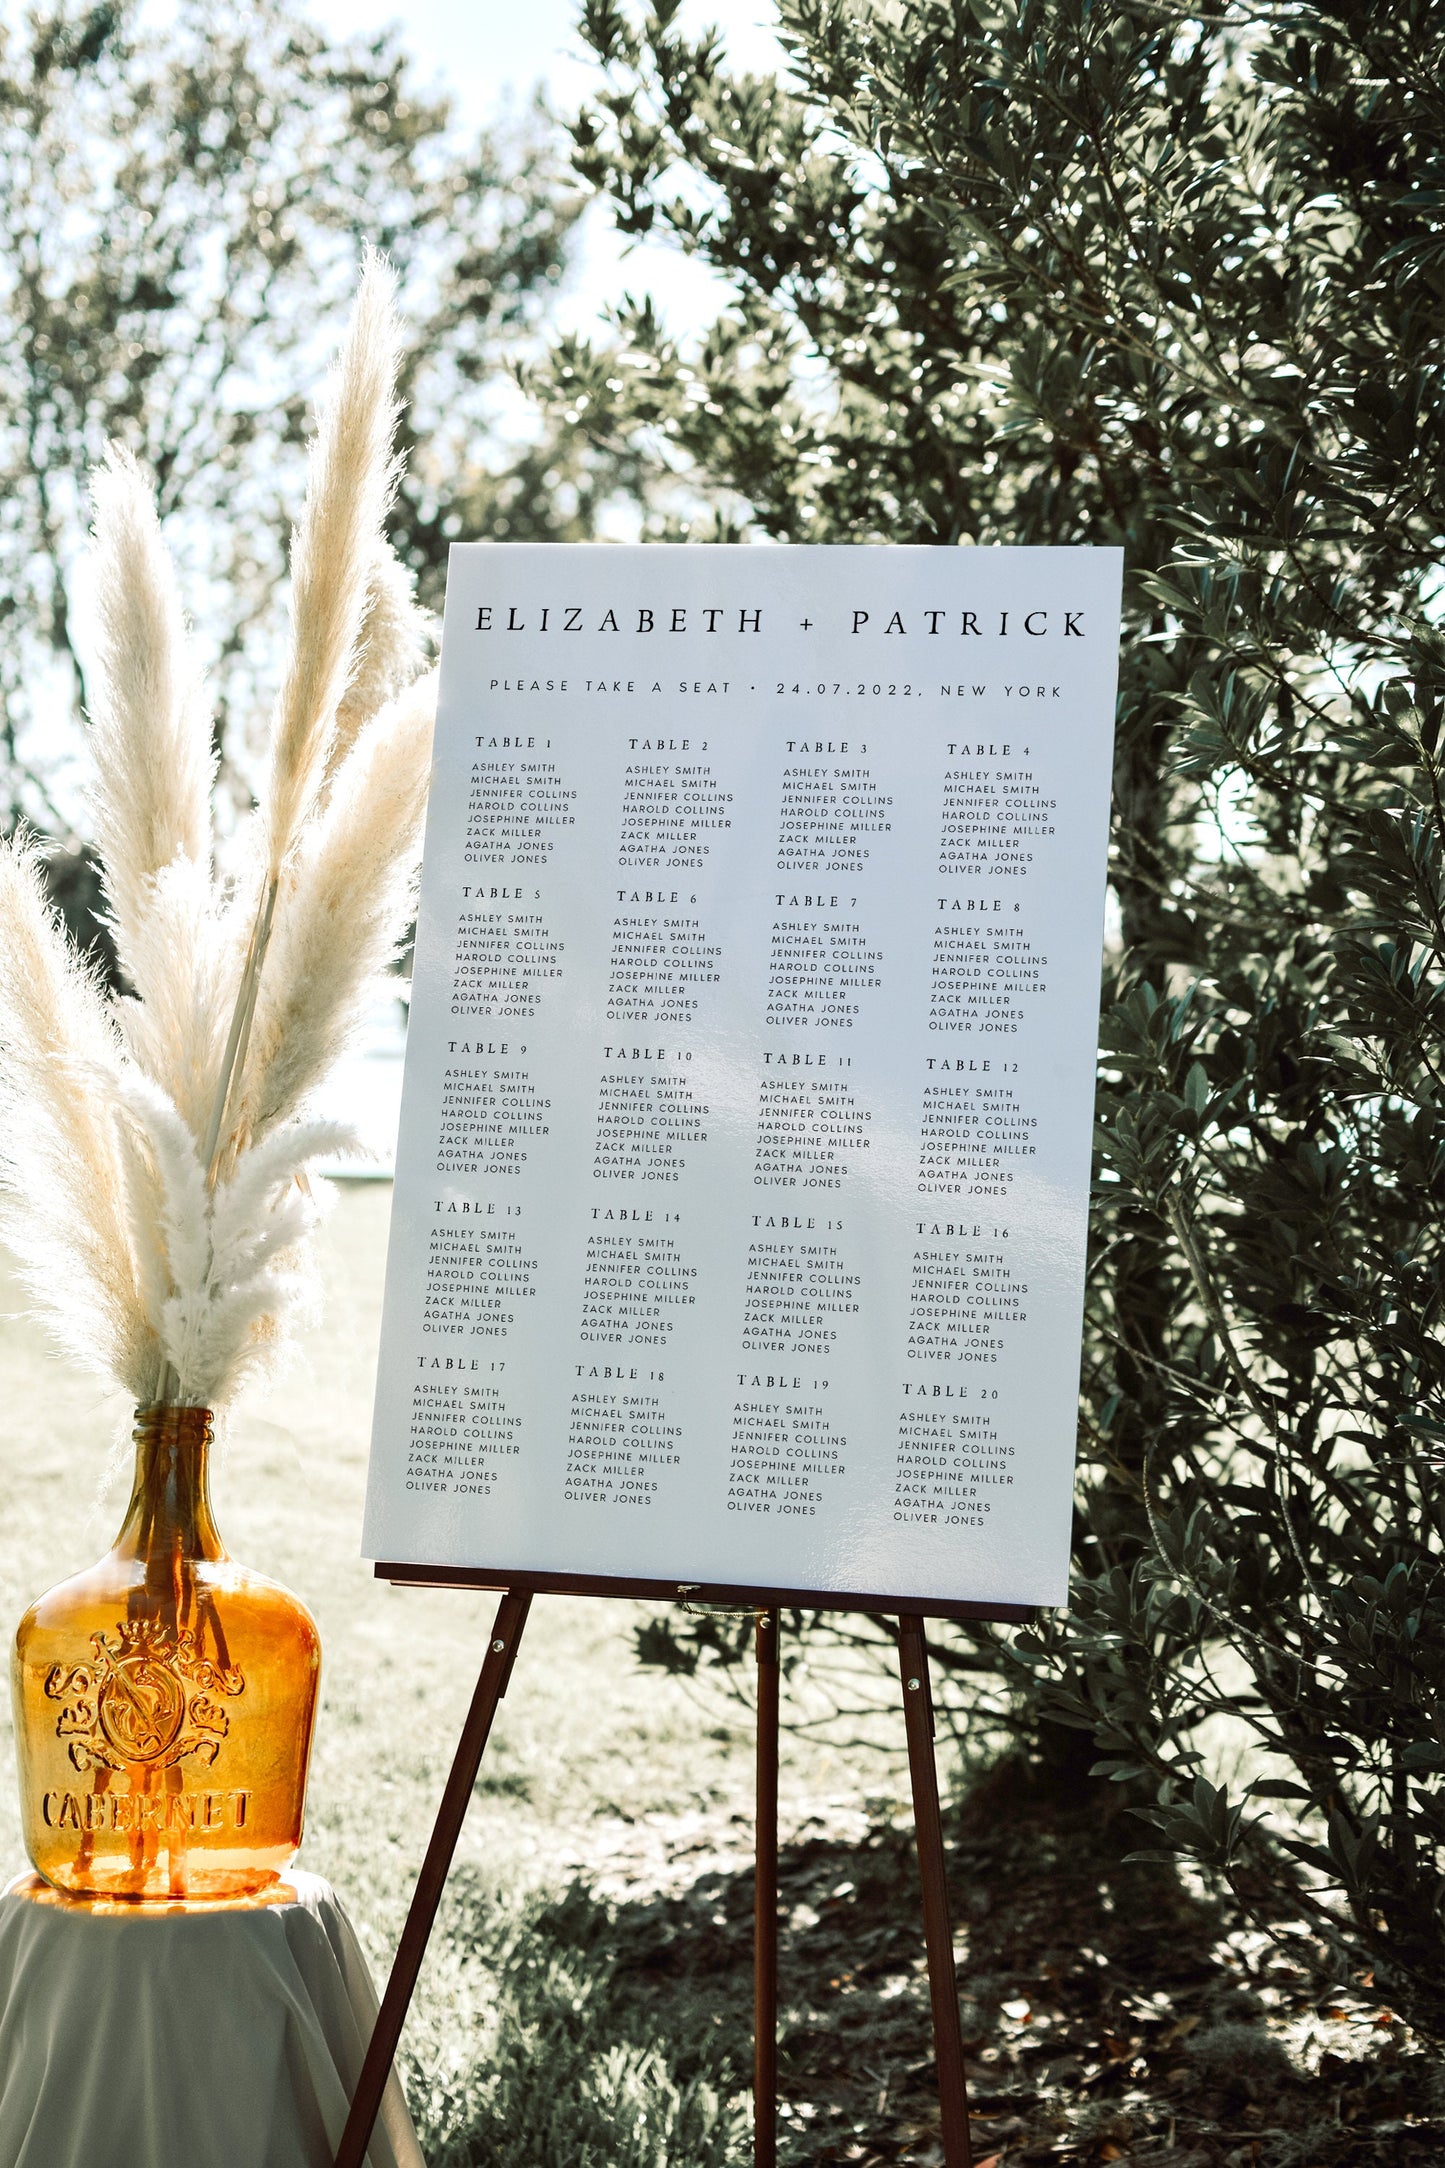 ELIZABETH + PATRICK
PLEASE TAKE A SEAT • 24.07.2022, NEW YORK
TABLE 1
ASHLEY SMITH
MICHAEL SMITH
JENNIFER COLLINS
HAROLD COLLINS
JOSEPHINE MILLER
ZACK MILLER
AGATHA JONES
OLIVER JONES
TABLE 2
ASHLEY SMITH
MICHAEL SMITH
JENNIFER COLLINS
HAROLD COLLINS
JOSEPHINE MILLER
ZACK MILLER
AGATHA JONES
OLIVER JONES
TABLE 3
ASHLEY SMITH
MICHAEL SMITH
JENNIFER COLLINS
HAROLD COLLINS
JOSEPHINE MILLER
ZACK MILLER
AGATHA JONES
OLIVER JONES
TABLE 4
ASHLEY SMITH
MICHAEL SMITH
JENNIFER COLLINS
HAROLD COLLINS
JOSEPHINE MILLER
ZACK MILLER
AGATHA JONES
OLIVER JONES
TABLE 5
ASHLEY SMITH
MICHAEL SMITH
JENNIFER COLLINS
HAROLD COLLINS
JOSEPHINE MILLER
ZACK MILLER
AGATHA JONES
OLIVER JONES
TABLE 6
ASHLEY SMITH
MICHAEL SMITH
JENNIFER COLLINS
HAROLD COLLINS
JOSEPHINE MILLER
ZACK MILLER
AGATHA JONES
OLIVER JONES
TABLE 7
ASHLEY SMITH
MICHAEL SMITH
JENNIFER COLLINS
HAROLD COLLINS
JOSEPHINE MILLER
ZACK MILLER
AGATHA JONES
OLIVER JONES
TABLE 8
ASHLEY SMITH
MICHAEL SMITH
JENNIFER COLLINS
HAROLD COLLINS
JOSEPHINE MILLER
ZACK MILLER
AGATHA JONES
OLIVER JONES
TABLE 9
ASHLEY SMITH
MICHAEL SMITH
JENNIFER COLLINS
HAROLD COLLINS
JOSEPHINE MILLER
ZACK MILLER
AGATHA JONES
OLIVER JONES
TABLE 10
ASHLEY SMITH
MICHAEL SMITH
JENNIFER COLLINS
HAROLD COLLINS
JOSEPHINE MILLER
ZACK MILLER
AGATHA JONES
OLIVER JONES
TABLE 11
ASHLEY SMITH
MICHAEL SMITH
JENNIFER COLLINS
HAROLD COLLINS
JOSEPHINE MILLER
ZACK MILLER
AGATHA JONES
OLIVER JONES
TABLE 12
ASHLEY SMITH
MICHAEL SMITH
JENNIFER COLLINS
HAROLD COLLINS
JOSEPHINE MILLER
ZACK MILLER
AGATHA JONES
OLIVER JONES
TABLE 13
ASHLEY SMITH
MICHAEL SMITH
JENNIFER COLLINS
HAROLD COLLINS
JOSEPHINE MILLER
ZACK MILLER
AGATHA JONES
OLIVER JONES
TABLE 14
ASHLEY SMITH
MICHAEL SMITH
JENNIFER COLLINS
HAROLD COLLINS
JOSEPHINE MILLER
ZACK MILLER
AGATHA JONES
OLIVER JONES
TABLE 15
ASHLEY SMITH
MICHAEL SMITH
JENNIFER COLLINS
HAROLD COLLINS
JOSEPHINE MILLER
ZACK MILLER
AGATHA JONES
OLIVER JONES
TABLE 16
ASHLEY SMITH
MICHAEL SMITH
JENNIFER COLLINS
HAROLD COLLINS
JOSEPHINE MILLER
ZACK MILLER
AGATHA JONES
OLIVER JONES
TABLE 17
ASHLEY SMITH
MICHAEL SMITH
JENNIFER COLLINS
HAROLD COLLINS
JOSEPHINE MILLER
ZACK MILLER
AGATHA JONES
OLIVER JONES
TABLE 18
ASHLEY SMITH
MICHAEL SMITH
JENNIFER COLLINS
HAROLD COLLINS
JOSEPHINE MILLER
ZACK MILLER
AGATHA JONES
OLIVER JONES
TABLE 19
ASHLEY SMITH
MICHAEL SMITH
JENNIFER COLLINS
HAROLD COLLINS
JOSEPHINE MILLER
ZACK MILLER
AGATHA JONES
OLIVER JONES
TABLE 20
ASHLEY SMITH
MICHAEL SMITH
JENNIFER COLLINS
HAROLD COLLINS
JOSEPHINE MILLER
ZACK MILLER
AGATHA JONES
OLIVER JONES
CABERNET